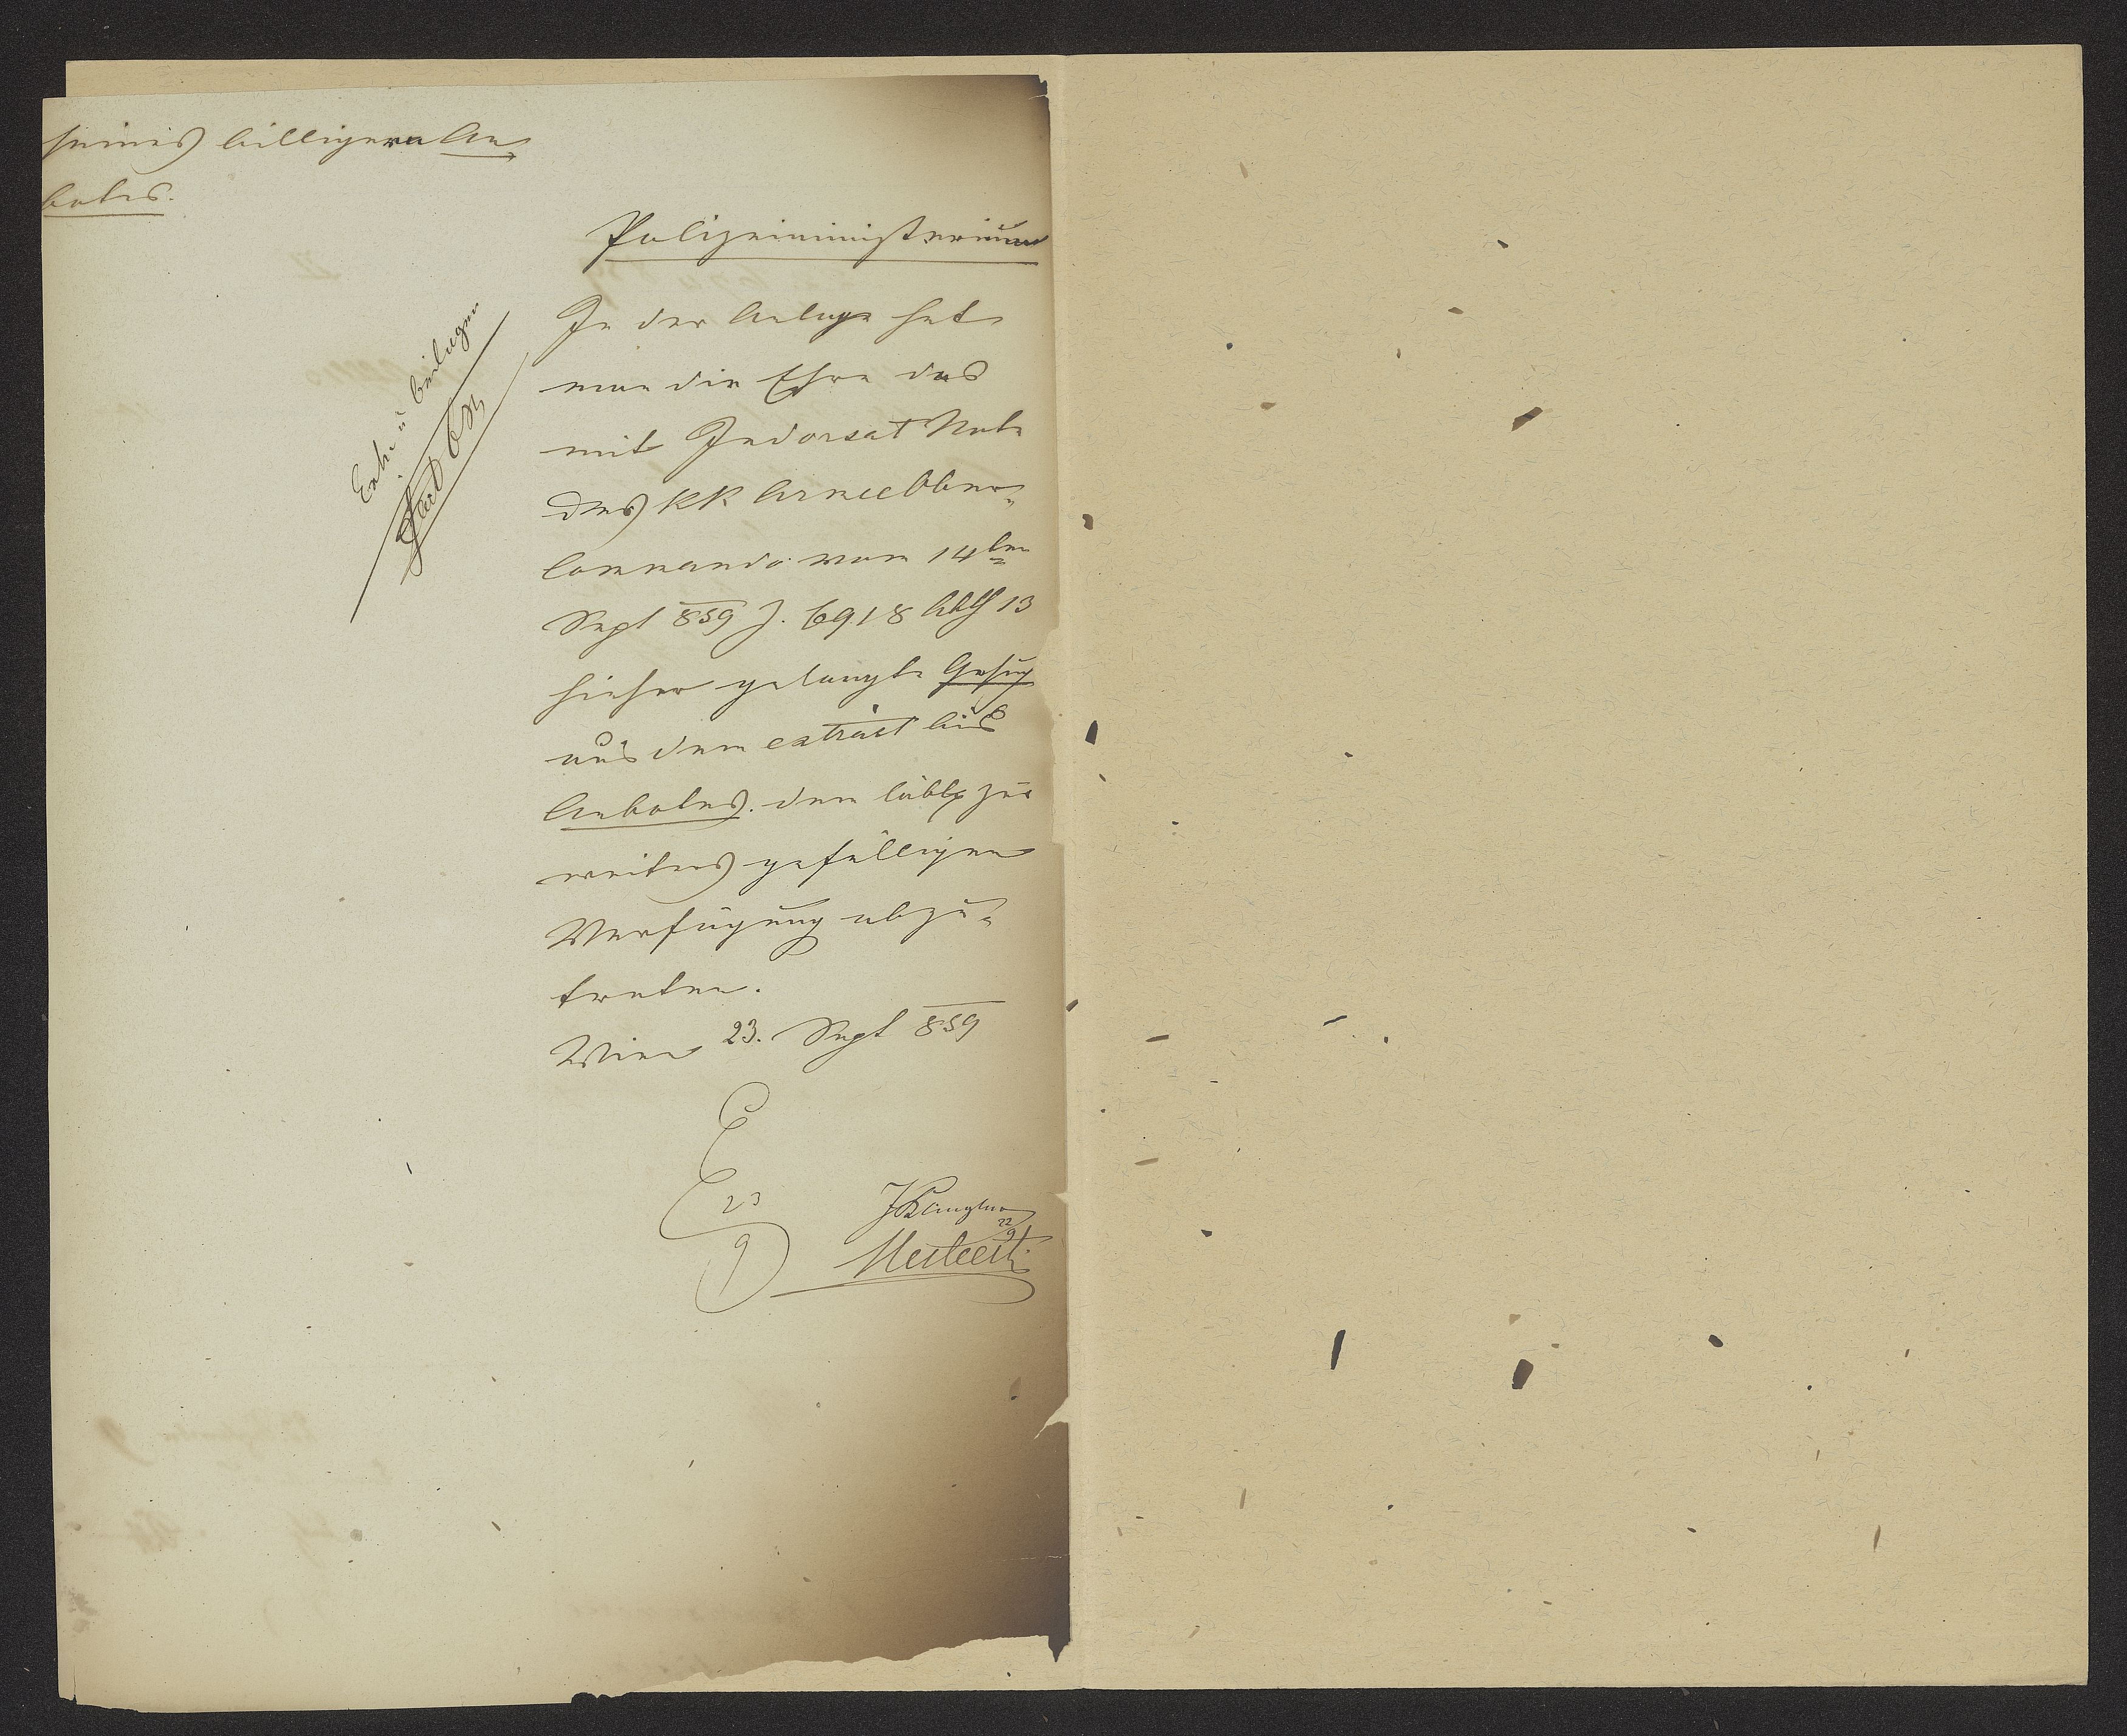 seines billigern An-
botes.
Polizeiministerium
In der Anlage hat
man die Ehre das
mit Indorsat Note
des KK Armee Ober-
Commando vom 14ten
Sept 859 Z. 6918 Abth 13
hieher gelangte Gesuch
aus dem extract
Anbotes. dem löbl zur
weitern gefälligen
Verfügung abzu-
treten.
Wien 23. Sept 859
Exh. u Beilagen
23
9
22
9